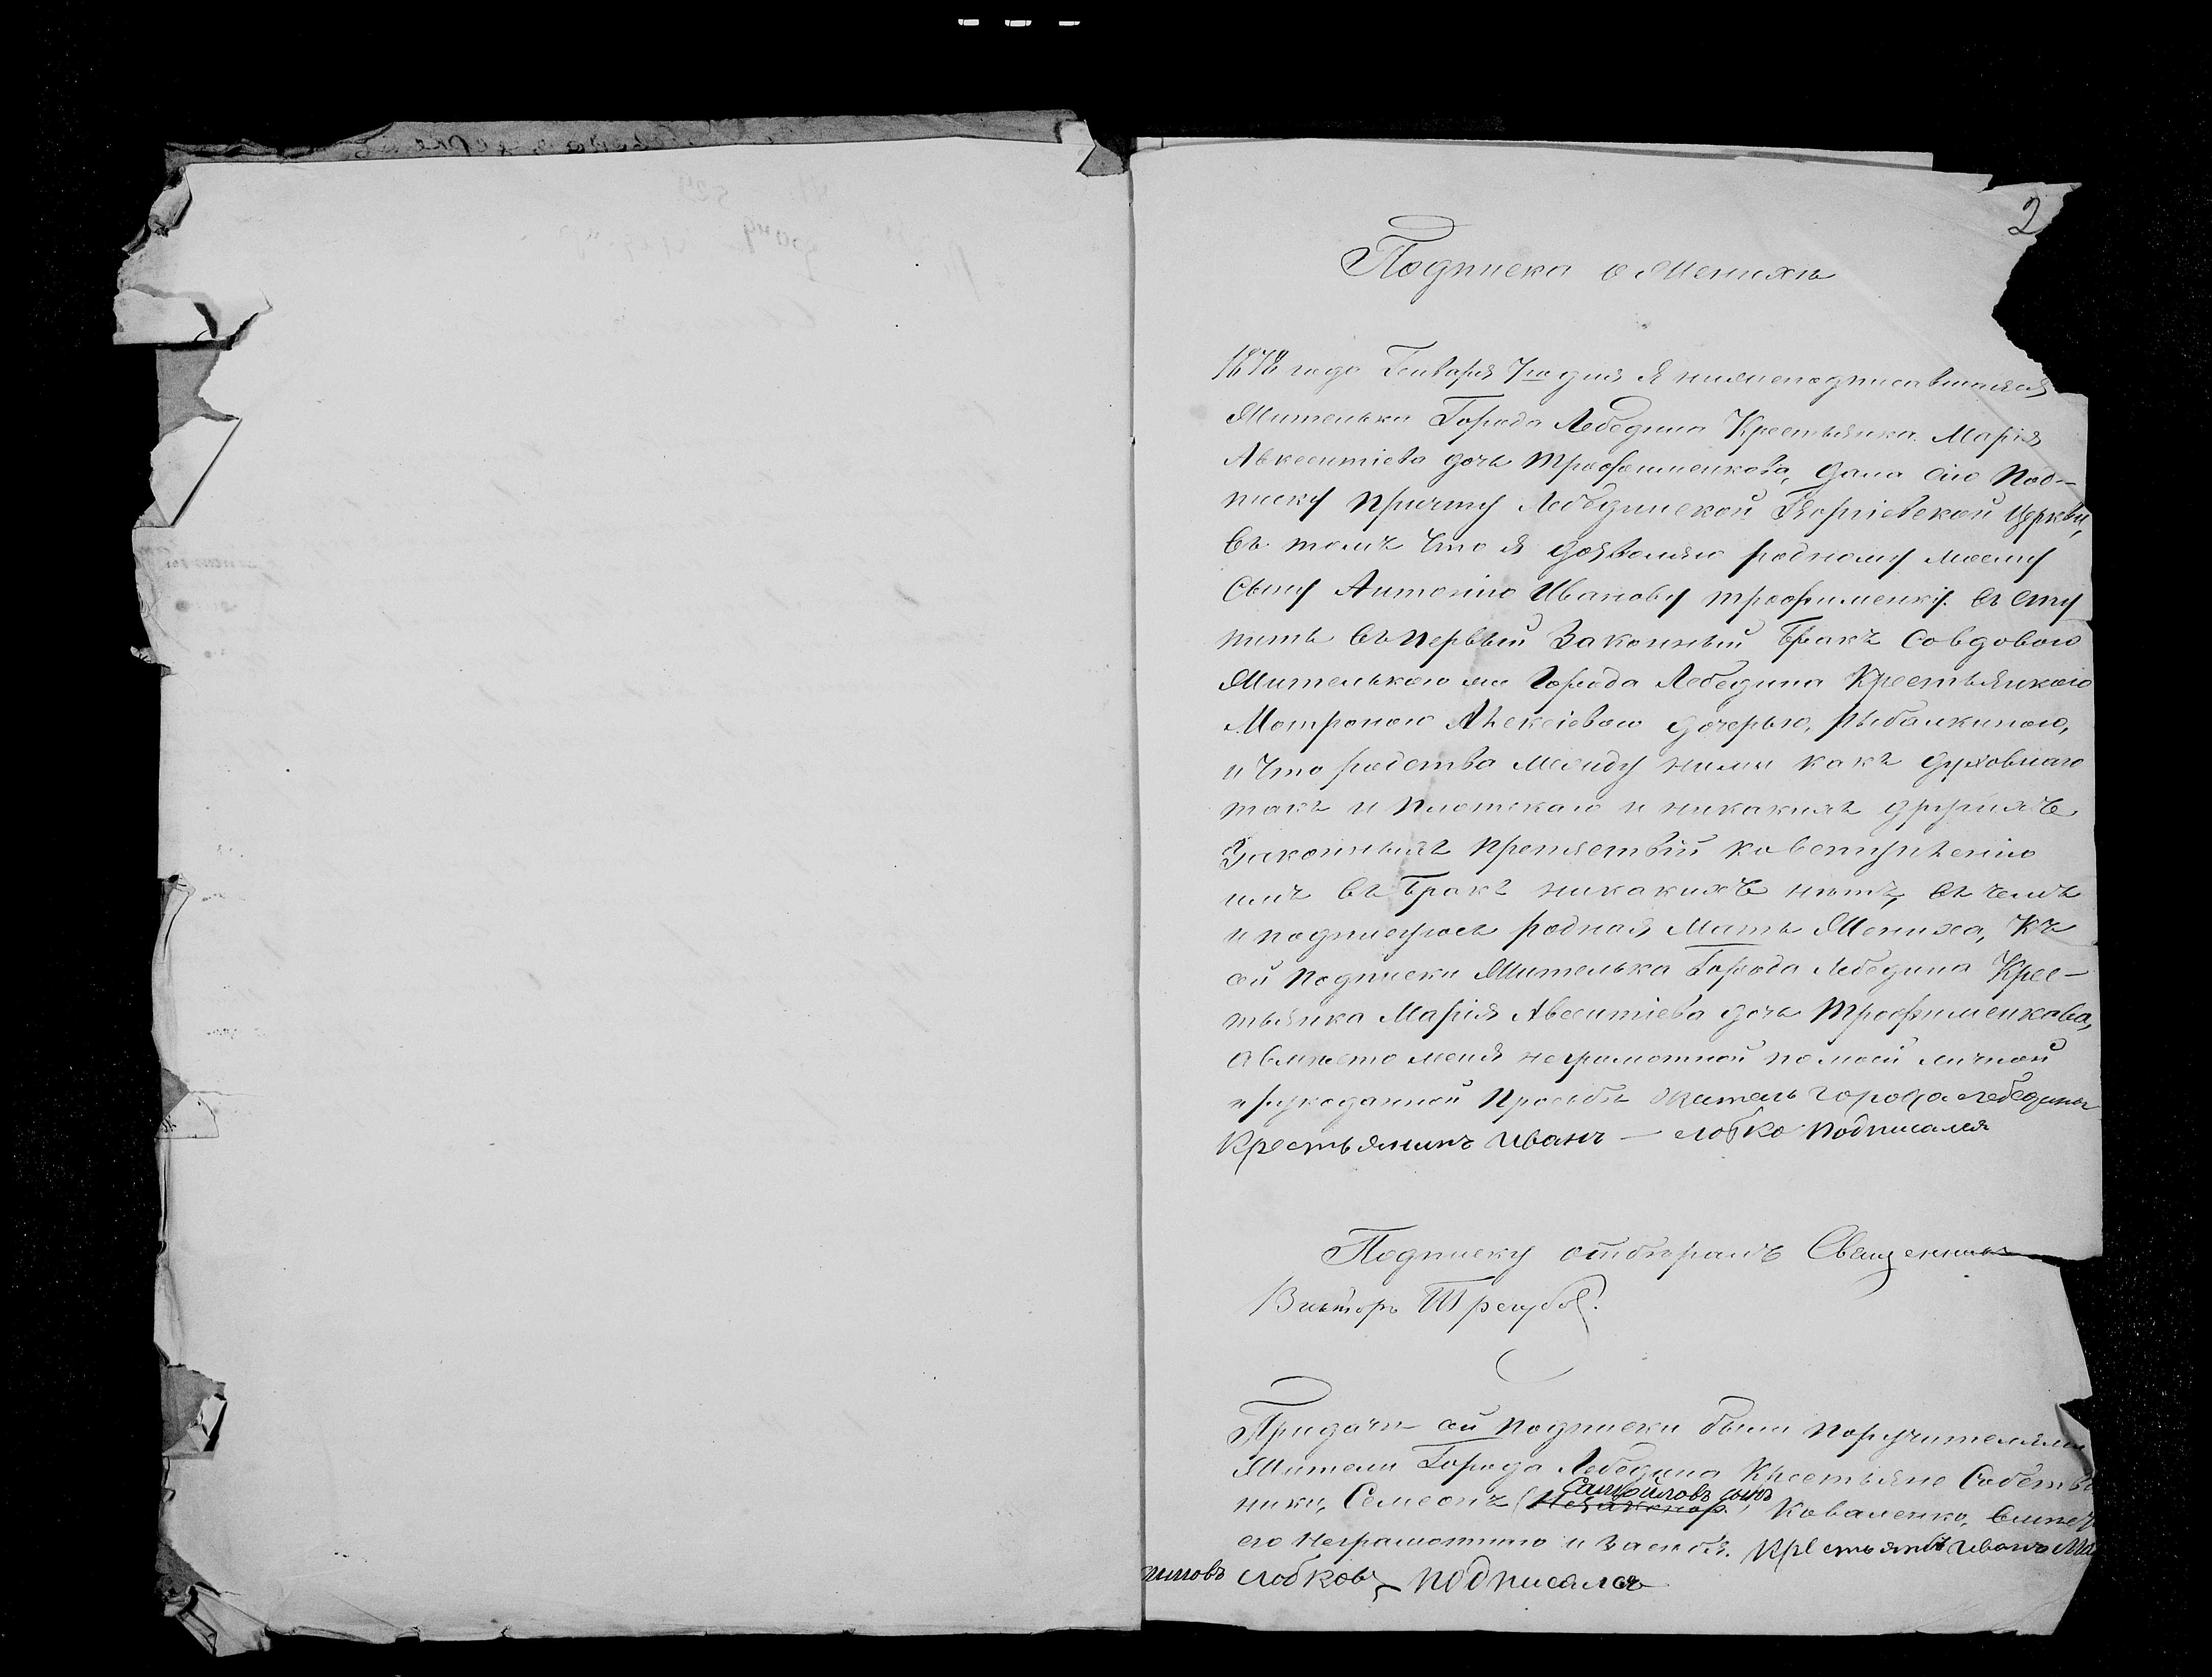 2
Подписка о Женихѣ
1878 года Генваря 7го дня Я нижеподписавшаяся
Жителька Города Лебедина Крестьянка Марія
Авксентіева дочь Трофименкова, дала сію Под-
писку Причту Лебединской Георгіевской Церкви,
въ томъ что я дозволяю родному моему
сыну Антонію Иванову Трофименку всту
пить въ первый Законный Бракъ со вдовою
Жителькою Города Лебедина Крестьянкою
Матроною Алексіевою дочерью, Рыбалкиною,
и что родства между ними какъ духовнаго
такъ и плотскаго и никакихъ другихъ
Законныхъ препятствій ко вступленію
имъ въ Бракъ никакихъ нѣтъ, въ чемъ
и подписуюсь родная Мать Жениха, Къ
сей Подписки Жителька Города Лебедина Крес-
тьянка Марія Авсентіева дочь Трофименкава,
а вмѣсто меня неграмотной по моей личной
и рукоданной Прозьбы житель города лебедина
Крестьянинъ иванъ — слобко подписался
Подписку отбиралъ Священникъ
Викторъ Трегубов.
При дачи сей подписки были поручителями
Жители Города Лебедина Крестьяне Собствѣ
Самойловъ сынъ
ники, Семеонъ Коваленко, вмѣсто
его неграмотнаго и за себя. Крестьянинъ иванъ Ми
слобковъ подписался